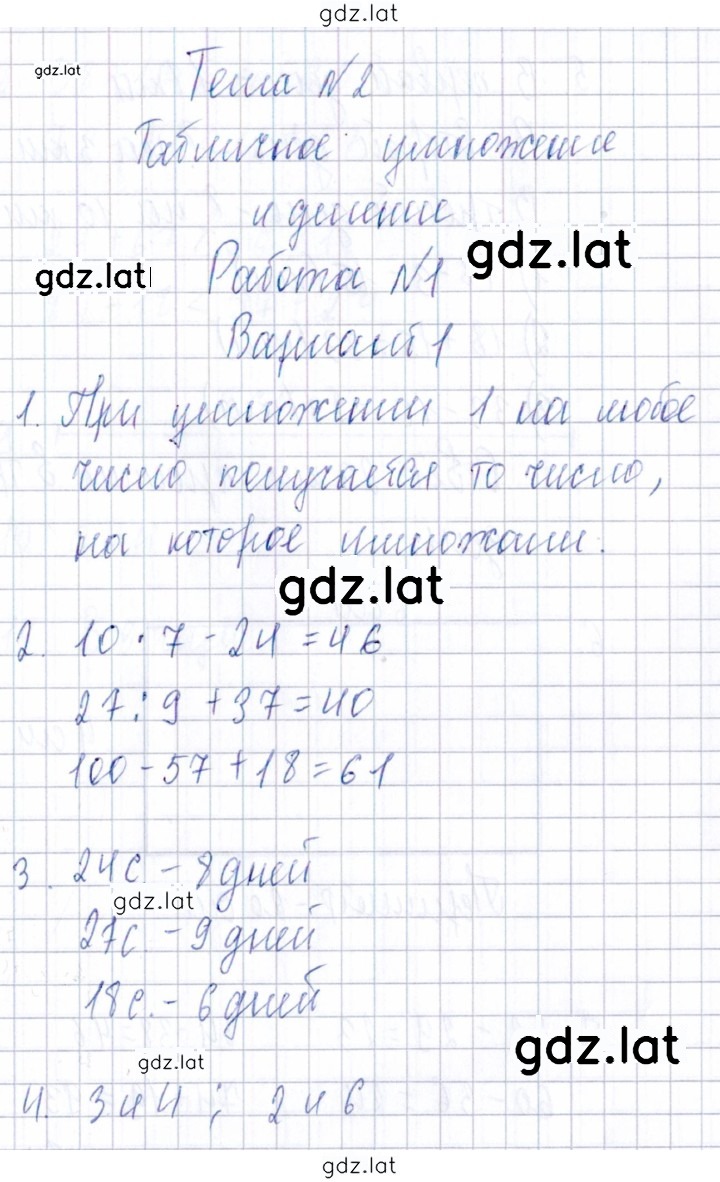 gdz.lat
gdz.lat
Тема №2
Табличное умножение
и деление
gdz.lat
gdz.lat
Работа №1
Вариант 1
1. При умножении 1 на любое
число получается то число,
на которое умножали.
gdz.lat
2. 10 · 7 - 24 = 46
27 : 9 + 37 = 40
100 - 57 + 18 = 61
3. 24с - 8 дней
gdz.lat
27с. - 9 дней
18с. - 6 дней
gdz.lat
gdz.lat
4. 3 и 4 ; 2 и 6
gdz.lat